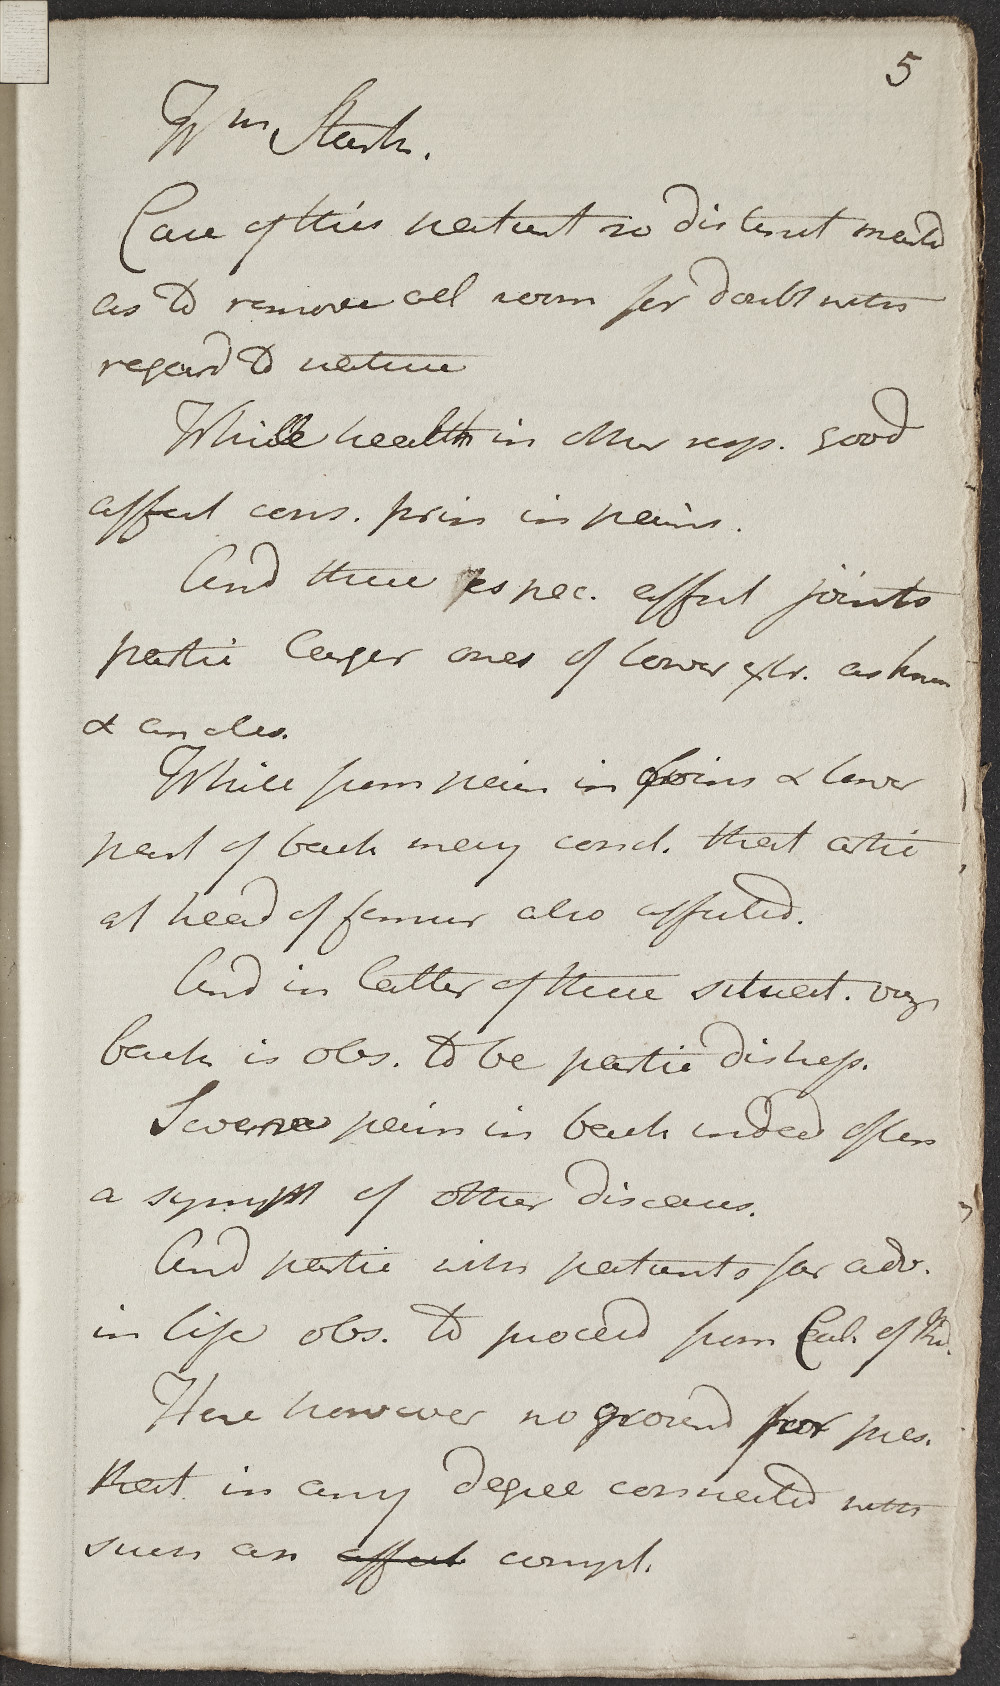 5
Wm Stark.
Case of this patient so distinct marked
as to remove all room for doubt with
regard to nature
While health in other resp. good
affect cons. prin in pains.
And these espec. affect joints
partic larger ones of lower extr. as knees
& ancles.
While from pain in loins & lower
part of back may concl. that artic
at head of femur also affected.
And in latter of these situat. viz
back is obs. to be partic distress.
Severe pain in back indeed often
a sympt of other diseases.
And partic with patients far adv.
in life obs. to proceed from Calc. of Kid.
Here however no ground for pres.
that in any degree connected with
such an affect compl.